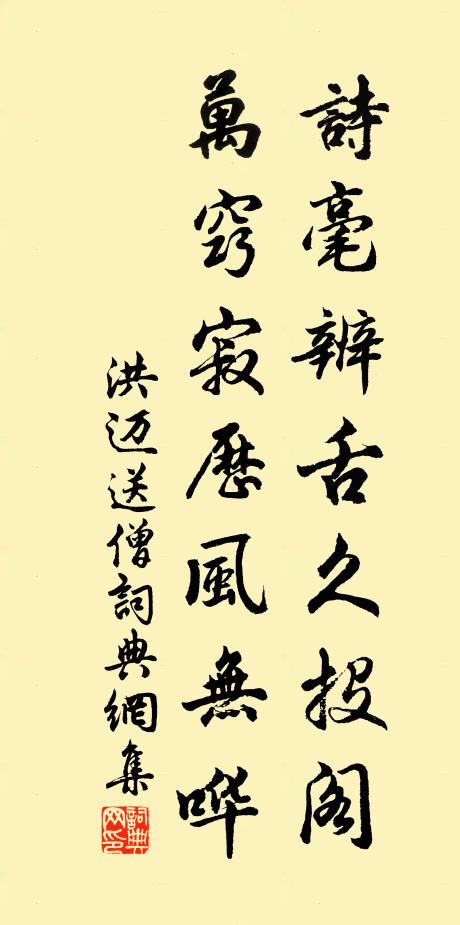 詩毫辨舌久投阁
萬窍寂歷風無哗
洪迈送僧詞典網集
詞典網印